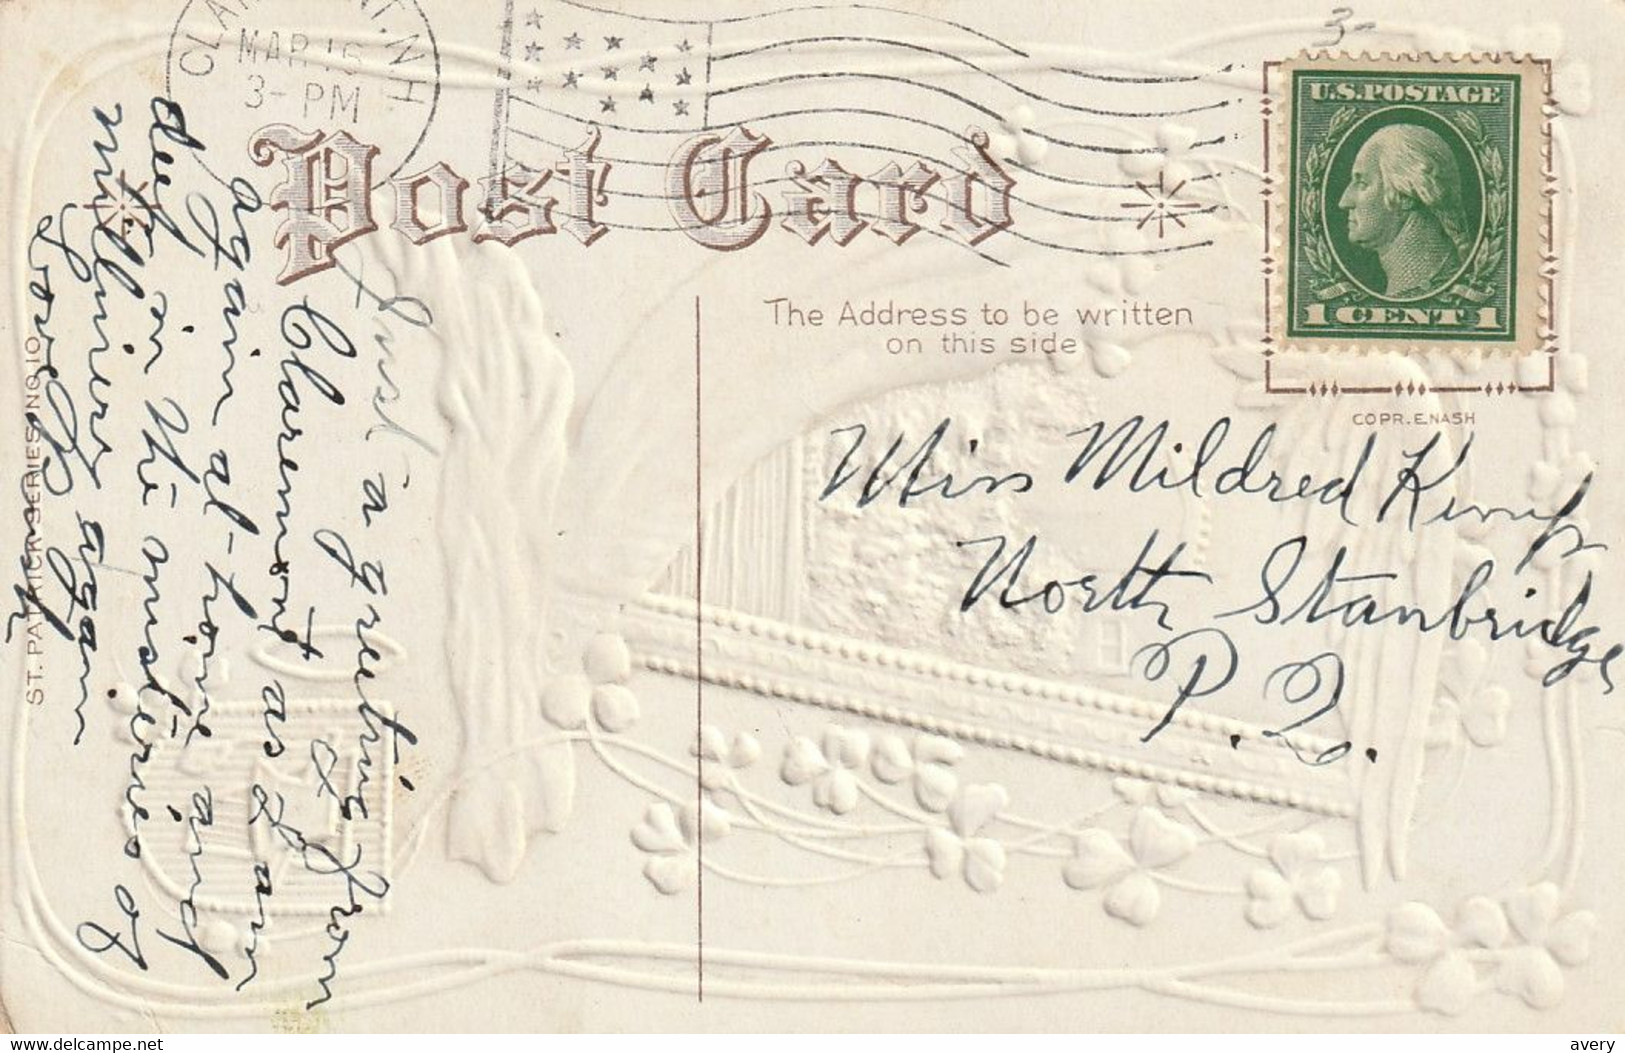 CLAREMONT, N.H.
MAR 15
3- PM
3-
U.S. POSTAGE
1 CENT 1
Post Card
The Address to be written
on this side
COPR. E. NASH
Miss Mildred Kemp
North Stanbridge
P. Q.
Just a greeting from
Claremont as I am
again at home and
deep in the mysteries of
millinery again
Love
ST. PATRICK SERIES NO. 10
Visit www.delcampe.net
avery